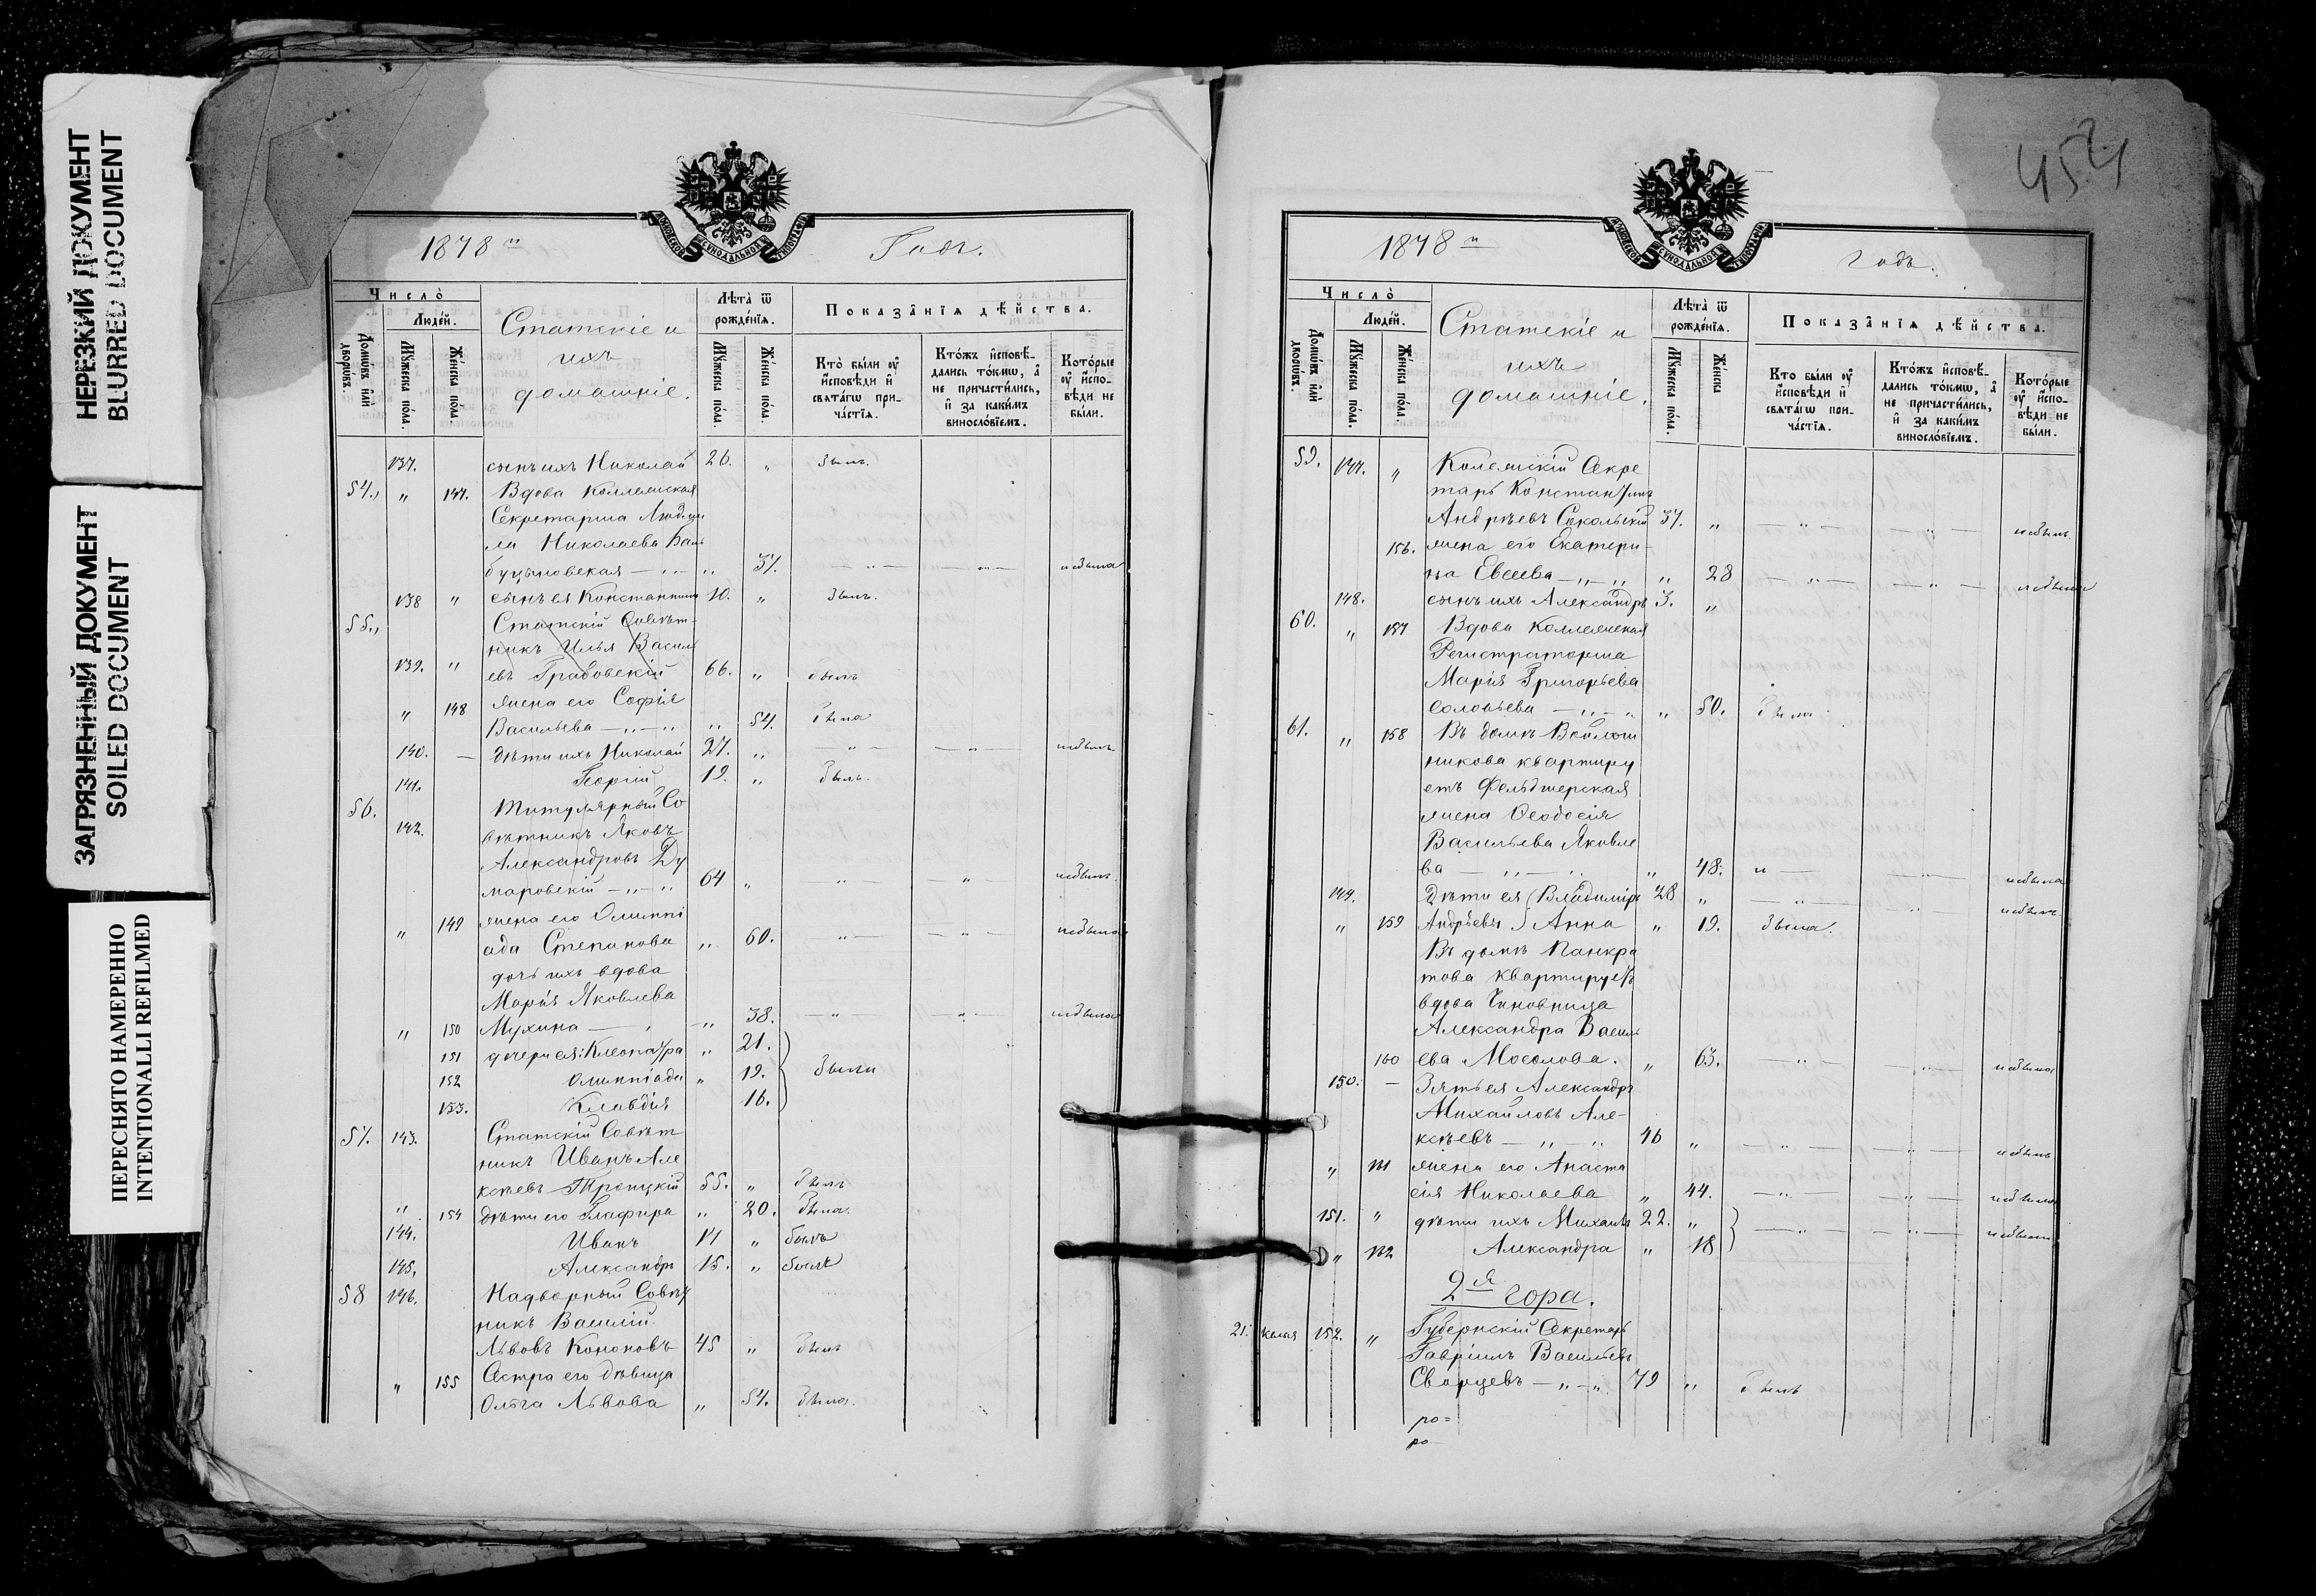 НЕРЕЗКИЙ ДОКУМЕНТ
BLURRED DOCUMENT
ЗАГРЯЗНЕННЫЙ ДОКУМЕНТ
SOILED DOCUMENT
ПЕРЕСНЯТО НАМЕРЕННО
INTENTIONALLI REFILMED
МОСКОВСКОЙ СѴНОДАЛЬНОЙ ТИПОГРАФІИ
1878й Годъ.
Число̀
Люде́й.
Домѡ́въ и҆лѝ дворѡ́въ.
Мꙋ́жеска по́ла.
Же́нска по́ла.
Статскіе и
ихъ
домашніе.
Лѣ́та ѿ рожде́нїѧ.
Мꙋ́жеска по́ла.
Же́нска по́ла.
Показа̑нїѧ дѣ́йства.
Кто̀ бы́ли ᲂу҆ и҆сповѣ́ди и҆ свѧта́гѡ прича́стїѧ.
Кто́жъ и҆сповѣ́дались то́кмѡ, а҆ не причасти́лись, и҆ за каки́мъ винословїемъ.
Кото́рые ᲂу҆ и҆сповѣ́ди не бы́ли.
137. сынъ ихъ Николай 26. " былъ.
54., " 147. Вдова Коллежская
Секретарша Людми
ла Николаева
37. — " — — " — небыла
138 " сынъ ея Константинъ 10. " былъ.
55., Статскій Совѣт-
никъ Илья Васил
139. " евъ Грабовскій 66. " былъ
" 148 жена его Софія
Васильева — " — " " 54. была
140. — дѣти их Николай 27. " — " — — " — небылъ
141. Георгій 19. " былъ.
56. Титулярный Со
142. вѣтникъ Яковъ
Александровъ Ду
маровскій — " — " 64 " — " — — " — небылъ.
" 149 жена его Олимпі
ада Степанова " 60. — " — — " — небыла
дочь ихъ вдова
Марія Яковлева
" 150 Мухина — " 38. — " — — " — небыла
151 дочери ея: Клеопатра " 21.
152 Олимпіада " 19. были
153. Клавдія 16.
57. 143. Статскій Совѣт
никъ Иванъ Але
ксѣевъ Троицкій 55. " былъ
" 154 дѣти его Глафира " 20. была.
144. Иванъ 17 " былъ
145. Александръ 15. " былъ
58 146. Надворный Совѣт
никъ Василій
Львовъ Кононовъ 45 " былъ
" 155 Сестра его дѣвица
Ольга Львова " 54. была.
1878й годъ.
МОСКОВСКОЙ СѴНОДАЛЬНОЙ ТИПОГРАФІИ
Число̀
Люде́й.
Домѡ́въ и҆лѝ дворѡ́въ.
Мꙋ́жеска по́ла.
Же́нска по́ла.
Статскіе и
ихъ
домашніе.
Лѣ́та ѿ рожде́нїѧ.
Мꙋ́жеска по́ла.
Же́нска
Показа̑нїѧ дѣ́йства.
Кто̀ бы́ли ᲂу҆ и҆сповѣ́ди и҆ свѧта́гѡ прича́стїѧ.
Кто́жъ и҆сповѣ́дались то́кмѡ, а҆ не причасти́лись, и҆ за каки́мъ винословїемъ.
Кото́рые ᲂу҆ и҆сповѣ́ди не бы́ли.
59. 147. " Колежскій Секре
тарь Константинъ
Андрѣевъ Сокольскій 37. " — " — — " — небылъ.
156. жена его Екатери-
на Евсеева — " — " " 28 — " — — " — небыла
148. сынъ ихъ Александръ 3. "
60. " 157 Вдова Коллежская
Регистраторша
Марія Григорьева
Соловьева — " — " " 50. была
61. " 158 Въ домѣ Войлош
никова квартиру
етъ Фельдшерская
жена Ѳеодосія
Васильева Яковле
ва — " — " " 48. " небыла
149. Дѣти ея Владиміръ 28 " — " — небылъ
" 159 Андрѣевы Анна " 19. была.
Въ домѣ Панкра
това квартируетъ
вдова Чиновница
Александра Василь
160 ева Мосолова. " 63. — " — — " — небыла
150. — Зять ея Александръ
Михайловъ Але-
ксѣевъ — " — " 46 " — " — — " — небылъ
" 161 жена его Анаста
сія Николаева " 44. — " — — " — небыла
151. " дѣти ихъ Михаилъ 22. " — " — — " — небыли
" 162 Александра " 18
2я гора.
21. келья 152. " Губернскій Секретарь
Гавріилъ Васильевъ
Скворцевъ — " — " 79 " былъ
ро=
ро—